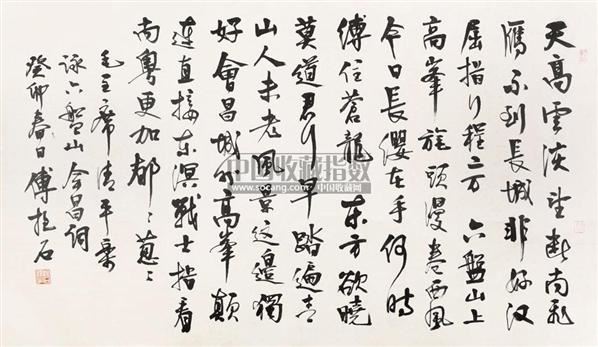 天高雲淡望断南飛
雁不到長城非好汉
屈指行程二万六盤山上
高峯旄頭漫卷西風
今日長纓在手何時
縛住蒼龍東方欲曉
莫道君行早踏遍青
山人未老風景这邊獨
好會昌城外高峯顛
連直接东溟戰士指看
南粤更加郁々葱々
毛主席清平樂
詠六盤山会昌詞
癸卯春日傅抱石
中国收藏指数
www.socang.com 中国收藏网